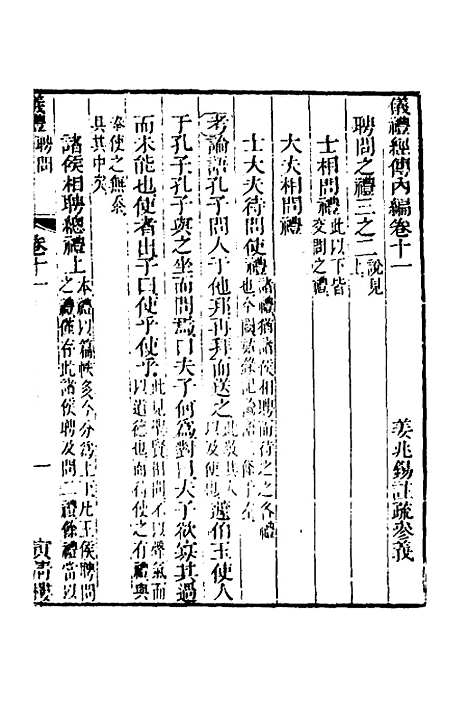 儀禮經傳內編卷十一
姜兆錫註疏參義
聘問之禮三之二說見上
士相問禮此以下皆交問之禮
大夫相問禮
士大夫待問使禮諸禮猶諸侯相聘而待之之各禮也今闕
考論語孔子問人于他邦再拜而送之蘧伯玉使人
于孔子孔子與之坐而問焉曰夫子何為對曰夫子欲寡其過
而未能也使者出子曰使乎使乎此見聖賢相問不以聲氣而以道德也而若使之有禮與
奉使之無忝具其中矣
諸侯相聘總禮上本禮以篇帙多今分為上下此王侯聘問之禮僅存此諸侯聘及問二禮條禮當以
儀禮 聘問 卷十一 一 寅清樓